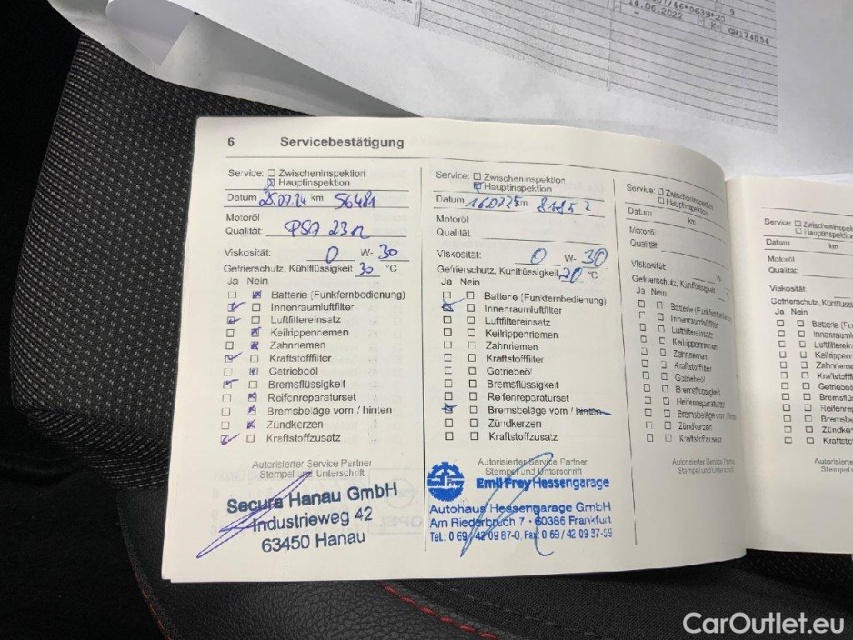 14.06.2022
6 Servicebestätigung
Service: Zwischeninspektion
Hauptinspektion
Datum 25.07.24 km 56481
Motoröl
Qualität: PSA
Viskosität: 0 W- 30
Gefrierschutz, Kühlflüssigkeit 30 °C
Ja Nein
Batterie (Funkfernbedienung)
Innenraumluftfilter
Luftfiltereinsatz
Keilrippenriemen
Zahnriemen
Kraftstofffilter
Getriebeöl
Bremsflüssigkeit
Reifenreparaturset
Bremsbeläge vorn / hinten
Zündkerzen
Kraftstoffzusatz
Autorisierter Service Partner
Stempel und Unterschrift
Secura Hanau GmbH
Industrieweg 42
63450 Hanau
Service: Zwischeninspektion
Hauptinspektion
Datum km
Motoröl
Qualität:
Viskosität: 0 W- 30
Gefrierschutz, Kühlflüssigkeit 20 °C
Ja Nein
Batterie (Funkfernbedienung)
Innenraumluftfilter
Luftfiltereinsatz
Keilrippenriemen
Zahnriemen
Kraftstofffilter
Getriebeöl
Bremsflüssigkeit
Reifenreparaturset
Bremsbeläge vorn / hinten
Zündkerzen
Kraftstoffzusatz
Autorisierter Service Partner
Stempel und Unterschrift
Emil Frey Hessengarage
Autohaus Hessengarage GmbH
Am Riederbruch 7 · 60386 Frankfurt
Service: Zwischeninspektion
Hauptinspektion
Datum km
Motoröl
Qualität
Viskosität:
Gefrierschutz, Kühlflüssigkeit
Ja Nein
Batterie (Funkfernbedienung)
Innenraumluftfilter
Luftfiltereinsatz
Keilrippenriemen
Zahnriemen
Kraftstofffilter
Getriebeöl
Bremsflüssigkeit
Reifenreparaturset
Bremsbeläge vorn
Zündkerzen
Kraftstoffzusatz
Autorisierter Service Partner
Stempel und Unterschrift
Service:
Datum km
Motoröl
Qualität:
Viskosität:
Gefrierschutz,
Ja Nein
CarOutlet.eu